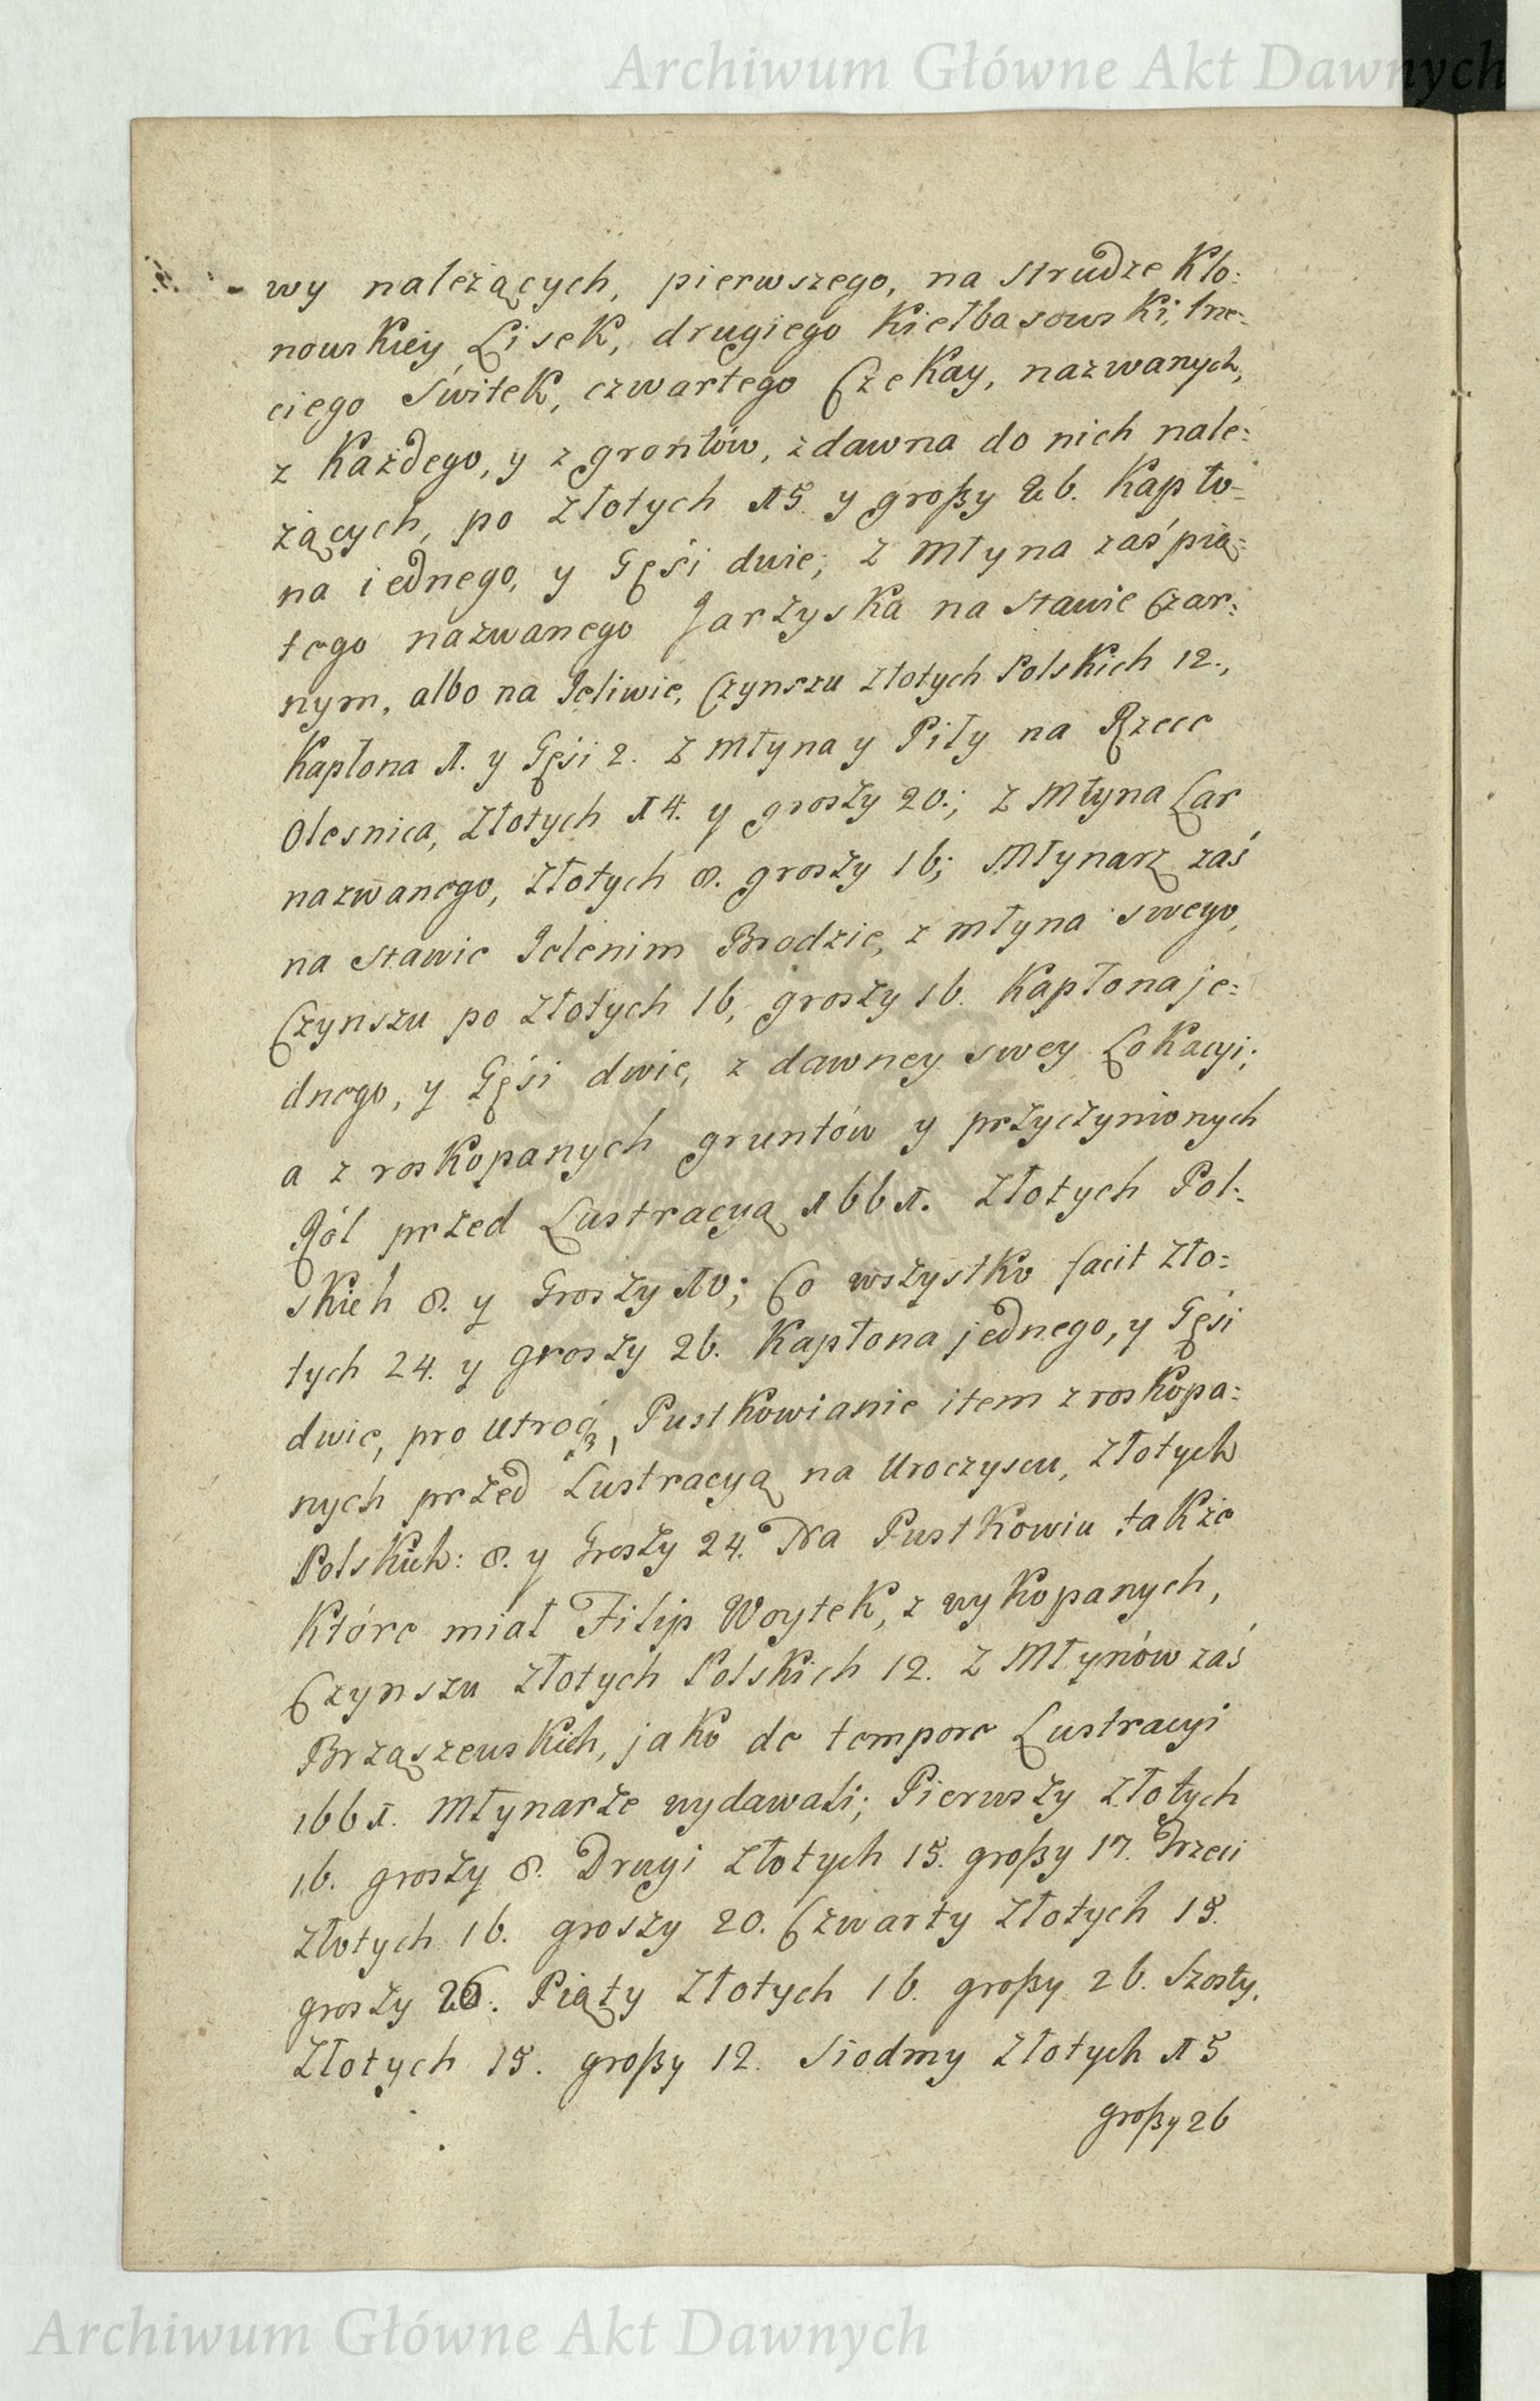 Archiwum Główne Akt Dawnych
wy należących, pierwszego, na strudze Kło:
nowskiey Lisek, drugiego Kiełbasowski, trze:
ciego Świtek, czwartego Czekay, nazwanych,
z Każdego, y z grontów, zdawna do nich nale:
żących, po Złotych 15. y großy 26. Kapło-
na iednego, y Gęsi dwie; z Młyna zaś pią:
tego nazwanego Jarzyska na stawie Czar:
nym, albo na Jeliwie, Czynszu Złotych Polskich 12.,
Kapłona 1. y Gęsi 2. Z Młyna y Piły na Rzece
Olesnica, Złotych 14. y groszy 20.; z Młyna Car
nazwanego, Złotych 8. groszy 16; Młynarz zaś
na stawie Jelenim Brodzie, z młyna swego,
Czynszu po Złotych 16, groszy 16. Kapłona je:
dnego, y Gęsi dwie, z dawney swey Lokacyi;
a z roskopanych gruntów y przyczynionych
Ról przed Lustracyą 1661. Złotych Pol:
skich 8. y Groszy 10; Co wszystko facit Zło:
tych 24. y groszy 26. Kapłona jednego, y Gęsi
dwie, pro utroq3, Pustkowianie item z roskopa:
nych przed Lustracyą na Uroczyscu, Złotych
Polskich: 8. y Groszy 24. Na Pustkowiu także
Które miał Filip Woytek, z wykopanych,
Czynszu Złotych Polskich 12. Z Młynów zaś
Brząszewskich, jako de tempore Lustracyi
1661. Młynarze wydawali; Pierwszy Złotych
16. groszy 8. Drugi Złotych 15. großy 17. Trzeci
Złotych 16. groszy 20. Czwarty Złotych 15.
groszy 26. Piąty Złotych 16. großy 26. Szosty,
Złotych 15. großy 12. Siodmy Złotych 15
großy 26
Archiwum Główne Akt Dawnych